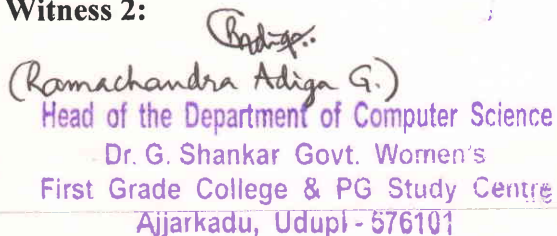 Witness 2:
(Ramachandra Adiga G.)
Head of the Department of Computer Science
Dr. G. Shankar Govt. Women's
First Grade College & PG Study Centre
Ajjarkadu, Udupi - 576101